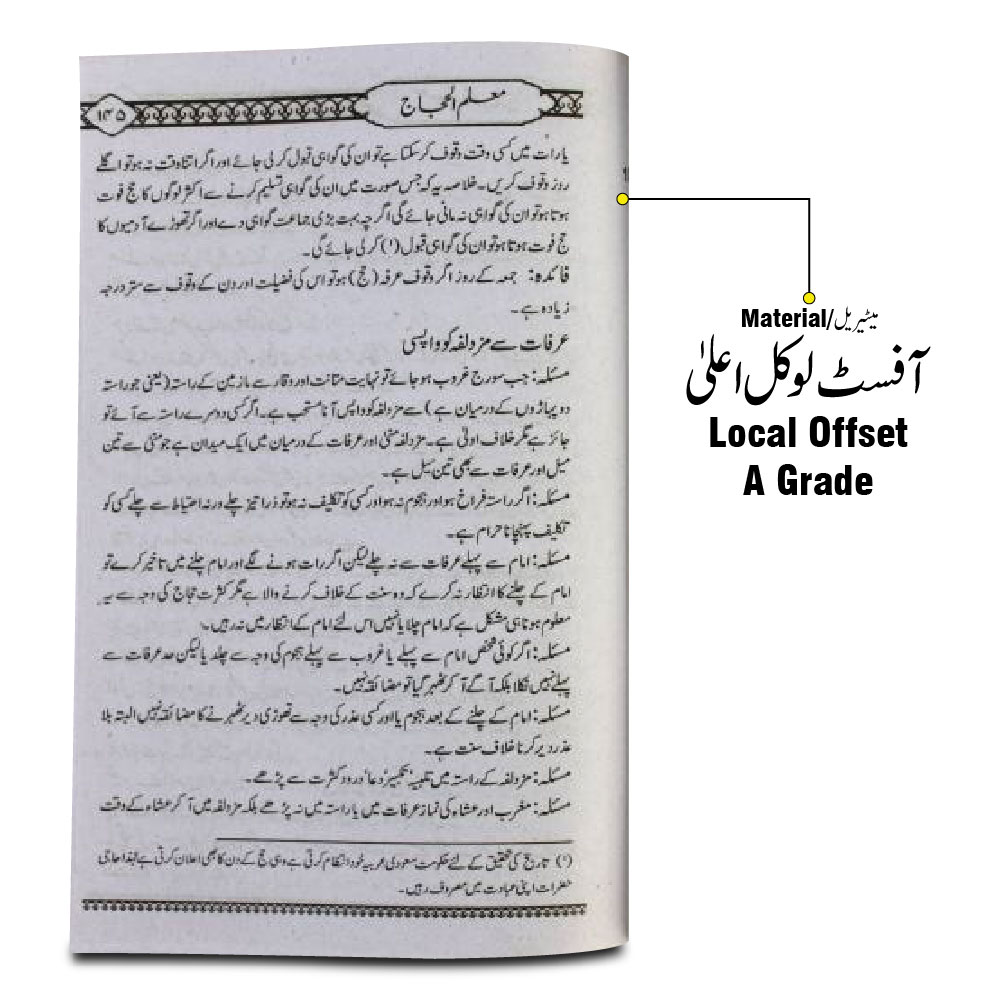 معلم الحجاج
۱۴۵
یا رات میں کسی وقت وقوف کر سکتا ہے تو ان کی گواہی قبول کر لی جائے اور اگر اتنا وقت نہ ہو تو اگلے
روز وقوف کریں۔ خلاصہ یہ کہ جس صورت میں ان کی گواہی تسلیم کرنے سے اکثر لوگوں کا حج فوت
ہوتا ہو تو ان کی گواہی نہ مانی جائے گی اگر چہ بہت بڑی جماعت گواہی دے اور اگر تھوڑے آدمیوں کا
حج فوت ہوتا ہو تو ان کی گواہی قبول (۱) کر لی جائے گی۔
فائدہ: جمعہ کے روز اگر وقوف عرفہ (حج) ہو تو اس کی فضیلت اور دن کے وقوف سے ستر درجہ
زیادہ ہے۔
عرفات سے مزدلفہ کو واپسی
مسئلہ: جب سورج غروب ہو جائے تو نہایت متانت اور وقار سے مازمین کے راستہ (یعنی جو راستہ
دو پہاڑوں کے درمیان ہے) سے مزدلفہ کو واپس آنا مستحب ہے۔ اگر کسی دوسرے راستہ سے آئے تو
جائز ہے مگر خلاف اولیٰ ہے۔ مزدلفہ منیٰ اور عرفات کے درمیان میں ایک میدان ہے جو منیٰ سے تین
میل اور عرفات سے بھی تین میل ہے۔
مسئلہ: اگر راستہ فراخ ہو اور ہجوم نہ ہو اور کسی کو تکلیف نہ ہو تو ذرا تیز چلے ورنہ احتیاط سے چلے کسی کو
تکلیف پہنچانا حرام ہے۔
مسئلہ: امام سے پہلے عرفات سے نہ چلے لیکن اگر رات ہونے لگے اور امام چلنے میں تاخیر کرے تو
امام کے چلنے کا انتظار نہ کرے کہ وہ سنت کے خلاف کرنے والا ہے مگر کثرت حجاج کی وجہ سے یہ
معلوم ہونا ہی مشکل ہے کہ امام چلا یا نہیں اس لئے امام کے انتظار میں نہ رہیں۔
مسئلہ: اگر کوئی شخص امام سے پہلے یا غروب سے پہلے ہجوم کی وجہ سے چلد یا لیکن حد عرفات سے
پہلے نہیں نکلا بلکہ آگے آ کر ٹھہر گیا تو مضائقہ نہیں۔
مسئلہ: امام کے چلنے کے بعد ہجوم یا اور کسی عذر کی وجہ سے تھوڑی دیر ٹھہرنے کا مضائقہ نہیں البتہ بلا
عذر دیر کرنا خلاف سنت ہے۔
مسئلہ: مزدلفہ کے راستہ میں تلبیہ، تکبیر، دعا، درود کثرت سے پڑھے۔
مسئلہ: مغرب اور عشاء کی نماز عرفات میں یا راستہ میں نہ پڑھے بلکہ مزدلفہ میں آ کر عشاء کے وقت
(۱) تاریخ کی تحقیق کے لئے حکومت سعودی عربیہ خود انتظام کرتی ہے وہی حج کے دن کا بھی اعلان کرتی ہے لہٰذا حاجی
حضرات اپنی عبادت میں مصروف رہیں۔
Material/میٹیریل
آفسٹ لوکل اعلیٰ
Local Offset
A Grade